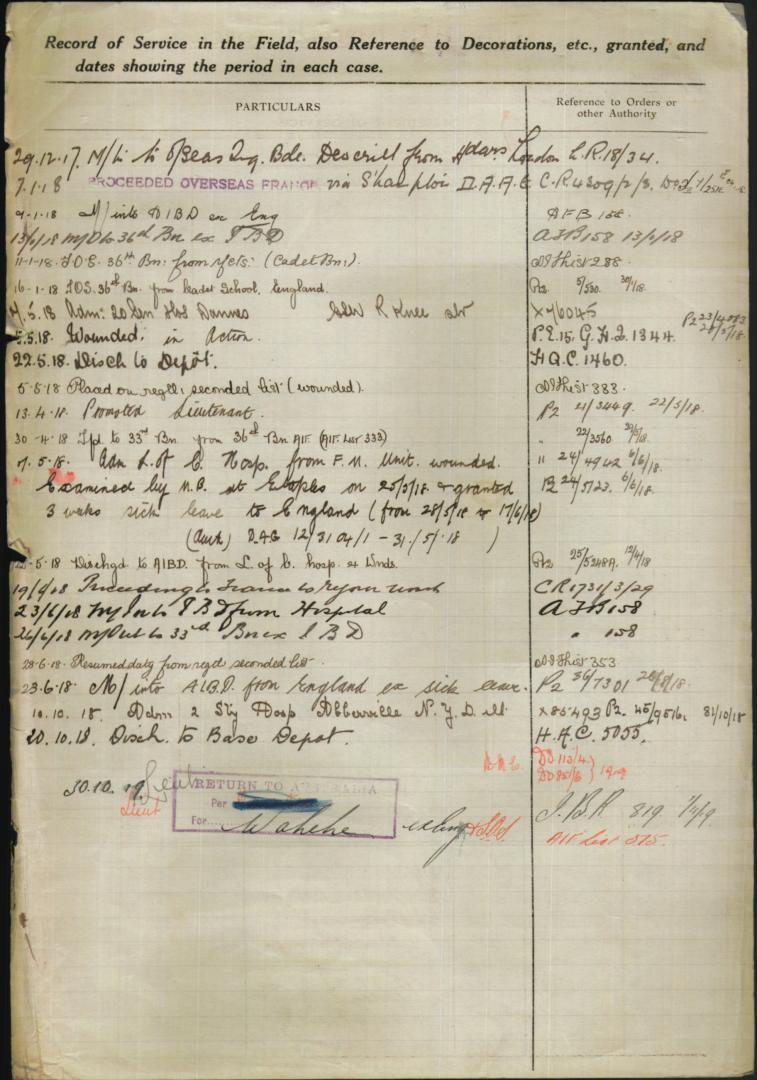 Record of Service in the Field, also Reference to Decorations, etc., granted, and
dates showing the period in each case.
PARTICULARS
Reference to Orders or
other Authority
29.12.17. M/ to O'seas Trg. Bde. from Hdqrs London L.R. 18/34.
7.1.18 PROCEEDED OVERSEAS FRANCE via S'hampton D.A.A.G C.R. 4309/2/3.
9-1-18 M/ into A I B D ex Eng A F B 158.
13/1/18 M/O to 36th Bn ex I B D A F B 158 13/1/18
11-1-18. T.O.S. 36th Bn: from rfcts: (Cadet Bn:). List 288.
16-1-18 T.O.S. 36th Bn. from Cadet School, England. P2. 5/530. 30/1/18.
7.5.18 Adm: 20 Gen Hos Dannes GSW R Knee slr X 46045 P2 23/4083
5.5.18. Wounded: in Action. P.E.15, G.H.Q. 1344. 28/5/18.
22.5.18. Disch to Depôt. H.Q.C. 1460.
5-5-18 Placed on regtl: seconded list (wounded). List 383.
13.4.18. Promoted Lieutenant. P2 21/3449. 22/5/18.
30-4-18 Tfd to 33rd Bn from 36th Bn AIF (AIF List 333) " 22/3560
7.5.18. Adm L. of C. Hosp. from F. M. Unit. wounded. " 24/4942 6/6/18.
Examined by M.B. at Etaples on 25/5/18 & granted P2 24/5123. 6/6/18.
3 weeks sick leave to England (from 28/5/18 to 17/6/18)
(Auth) DAG 12/3104/1 - 31/5/18 )
-5-18 Dischgd to AIBD. from L. of C. hosp. ex Wnds. P2 25/5248A.
19/6/18 Proceeding to France to rejoin unit CR 1731/3/29
23/6/18 M/ In to I B D from Hospital A F B 158
26/6/18 M/ Out to 33rd Bn ex I B D " 158
28-6-18. Resumed duty from regtl seconded list. List 353
23.6.18. M/ into A I B D. from England ex sick leave. P2 36/7301
10.10.18. Adm 2 Sty Hosp Abbeville N.Y.D. slt. X 85493 P2. 45/9516. 31/10/18
20.10.18. Disch. to Base Depot. H.A.C. 5055.
DO 113/4.
DO 85/6 } 1919
30.10.19. Lieut
Lieut
RETURN TO AUSTRALIA
Per
For
Wahehe
I.B.R 819
AIF List 515.